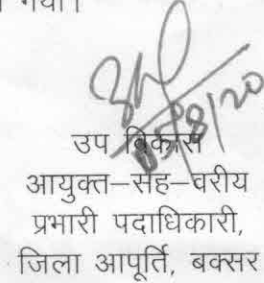 गया।
05/8/20
उप विकास
आयुक्त–सह–वरीय
प्रभारी पदाधिकारी,
जिला आपूर्ति, बक्सर